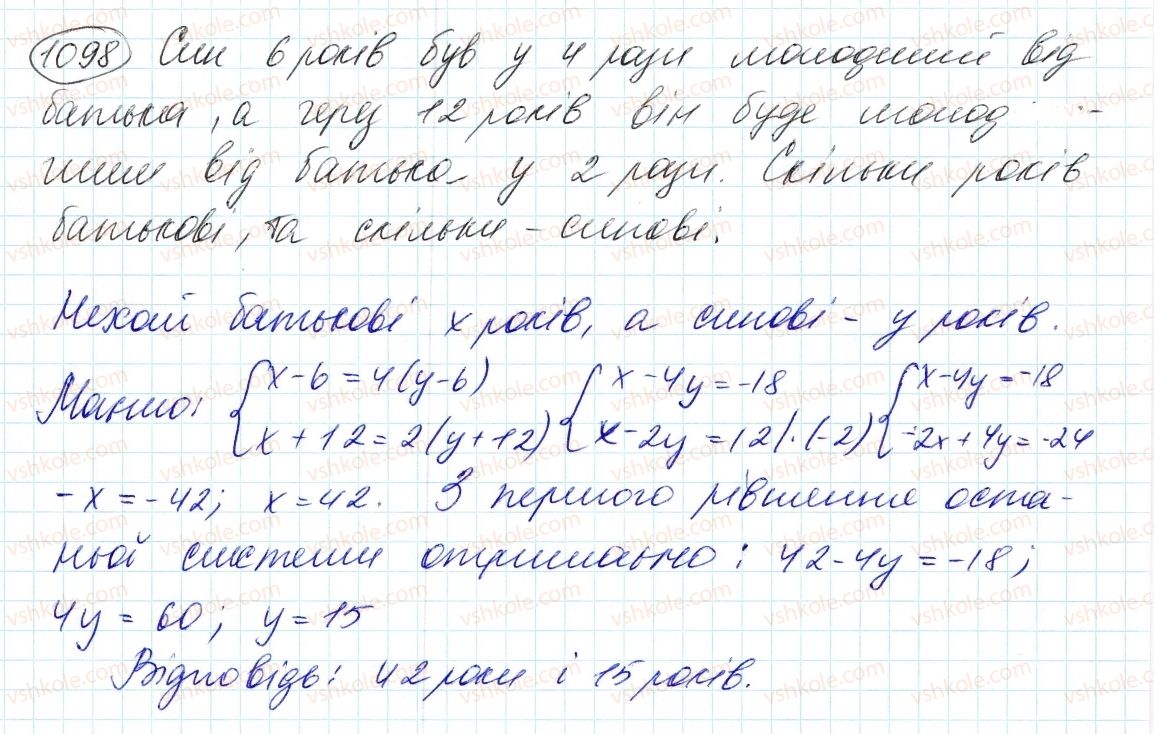 1098 Син 6 років був у 4 рази молодший від
батька, а через 12 років він буде молод-
шим від батька у 2 рази. Скільки років
батькові, та скільки - синові.
Нехай батькові x років, а синові - y років.
Маємо: { x - 6 = 4(y - 6) { x - 4y = -18 { x - 4y = -18
x + 12 = 2(y + 12) x - 2y = 12 | · (-2) -2x + 4y = -24
-x = -42; x = 42. З першого рівняння оста-
ньої системи отримаємо: 42 - 4y = -18;
4y = 60; y = 15
Відповідь: 42 роки і 15 років.